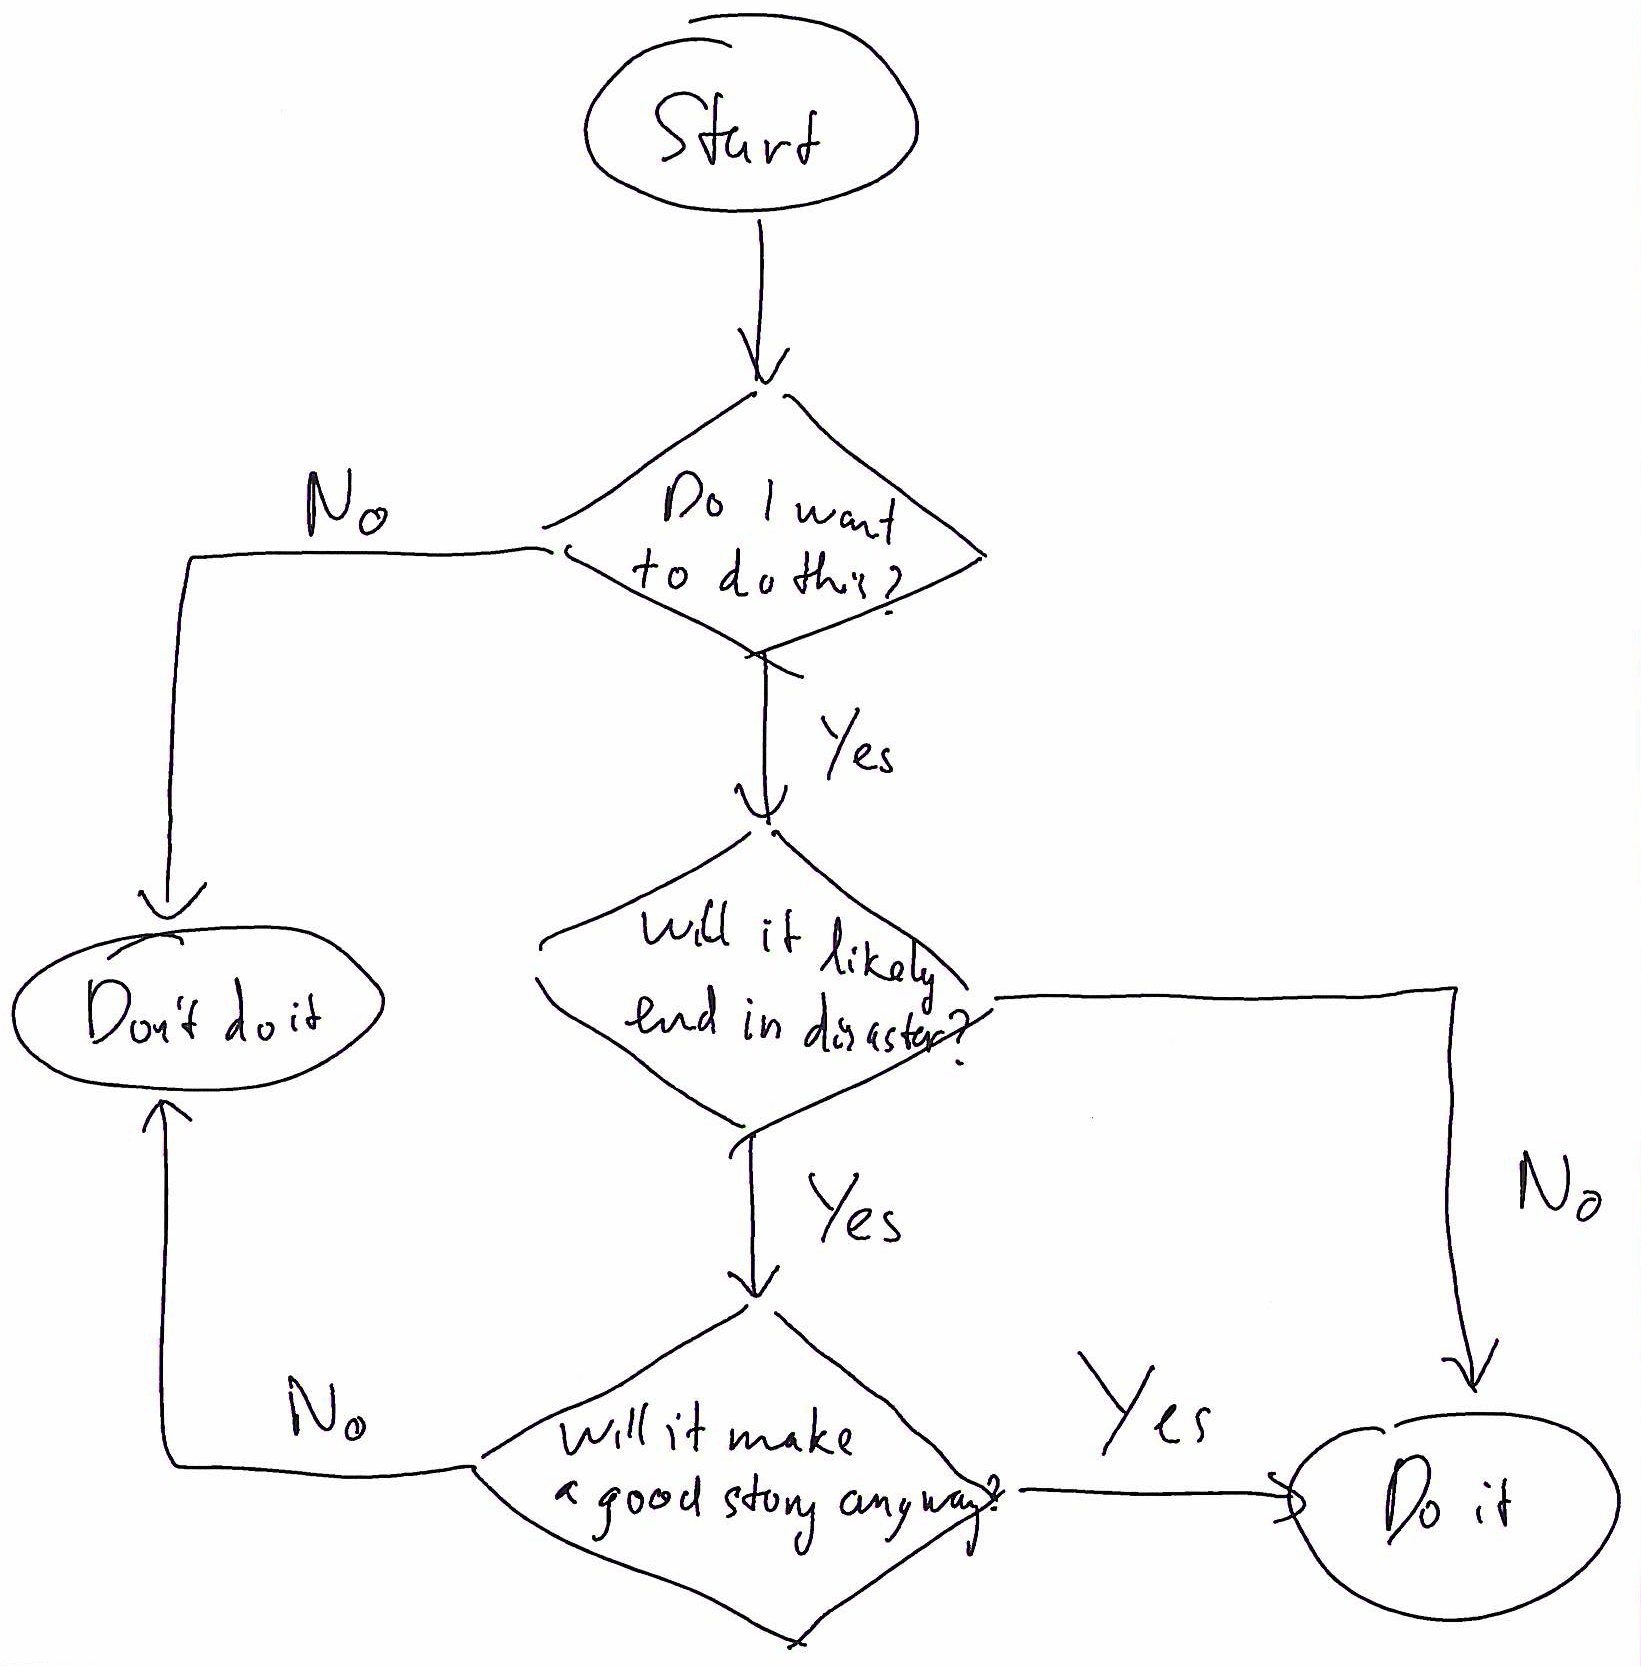 Start
Do I want
to do this?
No
Yes
Will it likely
end in disaster?
Don't do it
Yes
No
Will it make
a good story anyway?
No
Yes
Do it